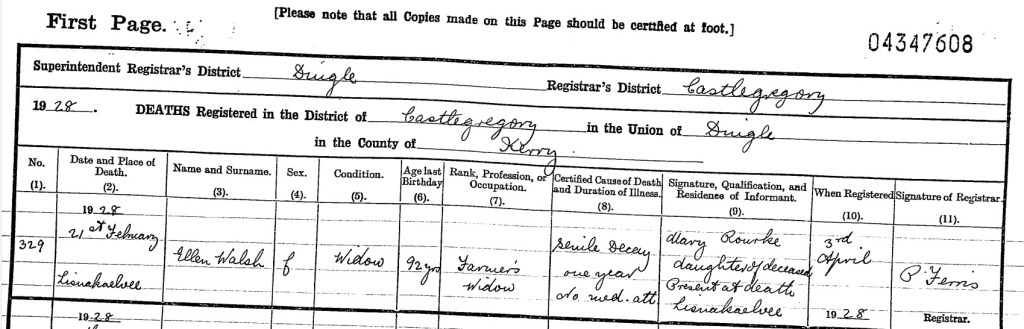 [Please note that all Copies made on this Page should be certified at foot.]
First Page.
04347608
Superintendent Registrar's District Dingle Registrar's District Castlegregory
1928. DEATHS Registered in the District of Castlegregory in the Union of Dingle
in the County of Kerry.
No. (1).
Date and Place of Death. (2).
Name and Surname. (3).
Sex. (4).
Condition. (5).
Age last Birthday (6).
Rank, Profession, or Occupation. (7).
Certified Cause of Death and Duration of Illness. (8).
Signature, Qualification, and Residence of Informant. (9).
When Registered (10).
Signature of Registrar. (11).
329
1928
21st February
Lisnakaelvee
Ellen Walsh
f
Widow
92 yrs
Farmer's
Widow
Senile Decay
one year
No med. att
Mary Rourke
daughter of deceased
Present at death
Lisnakaelvee
3rd
April
1928
P Ferris
Registrar.
1928
1928
Registrar